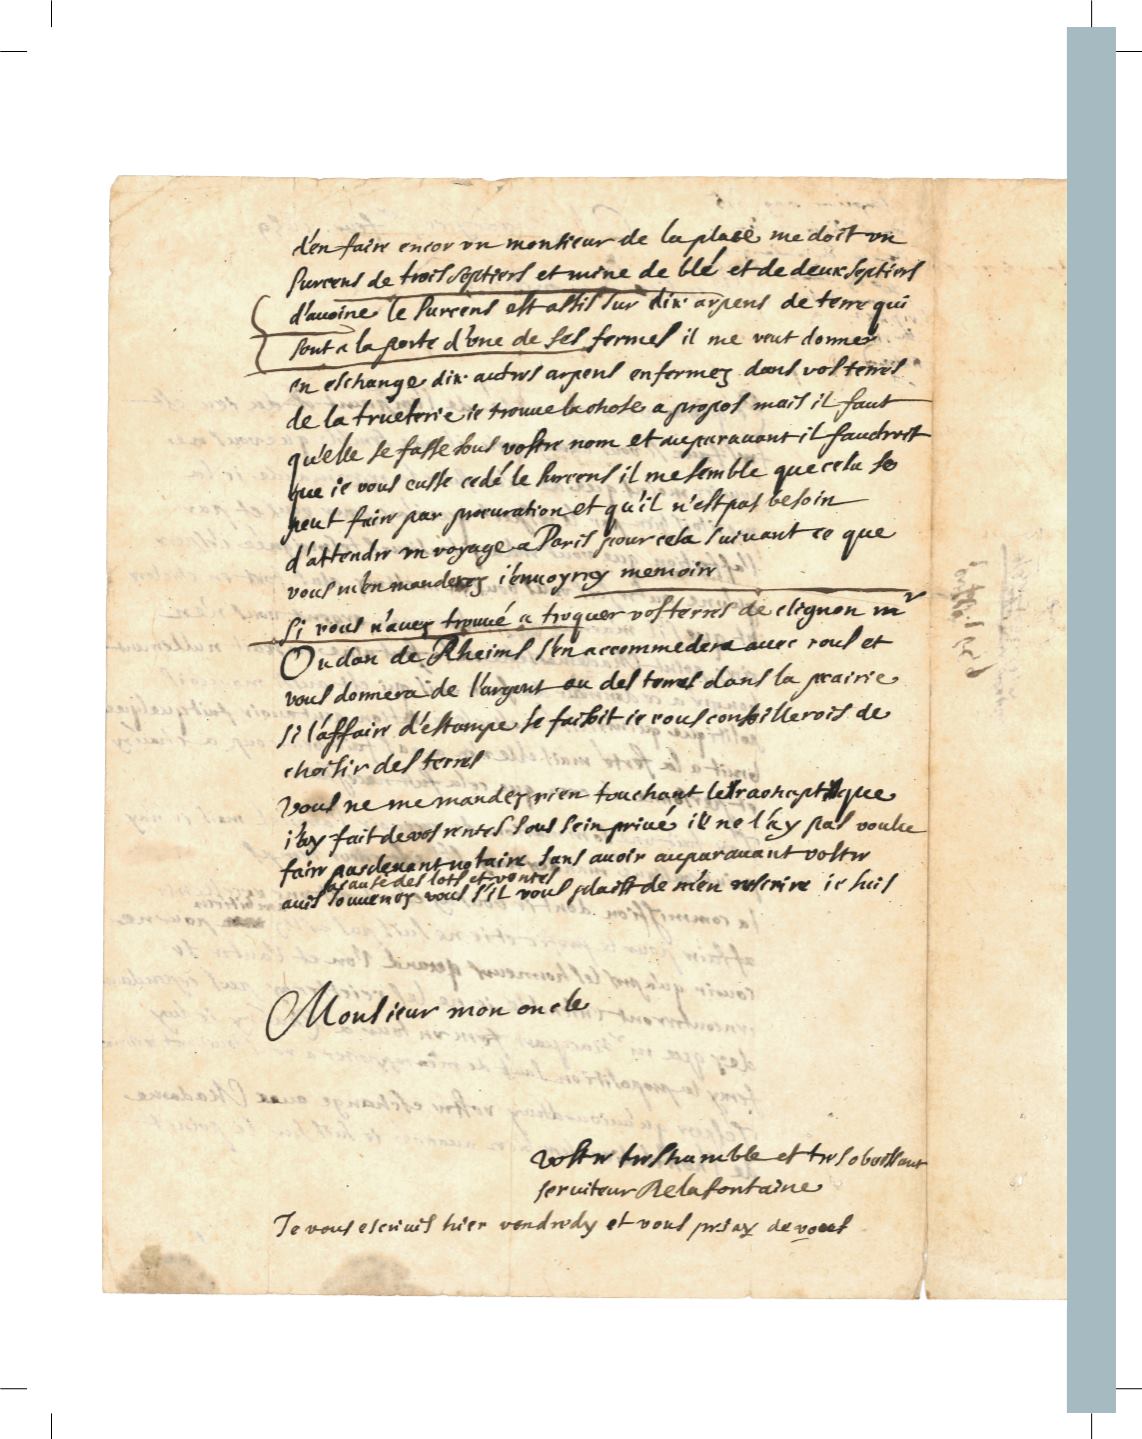 d'en faire encor un monsieur de la place me doit un
surcens de trois septiers et mine de blé et de deux septiers
d'auoine le surcens est assis sur dix arpens de terre qui
sont a la porte d'une de ses fermes il me veut donner
en eschange dix autres arpens enfermez dans vos terres
de la trueterie ie trouue la chose a propos mais il faut
qu'elle se fasse sous vostre nom et auparauant il faudroit
que ie vous eusse cedé le surcens il me semble que cela se
peut faire par procuration et qu'il n'est pas besoin
d'attendre un voyage a Paris pour cela suiuant ce que
vous m'en manderez i'enuoyrey memoire
si vous n'auez trouué a troquer vos terres de clignon mr
Oudan de Rheims s'en accommedera auec vous et
vous donnera de l'argent ou des terres dans la prairie
si l'affaire d'estampe se faisoit ie vous conseillerois de
choisir des terres
vous ne me mandez rien touchant le que
i'ay fait de vos rentes sous sein priué ie ne l'ay pas voulu
faire pardeuant notaire sans auoir auparauant vostre
a cause des lots et ventes
auis souuenez vous s'il vous plaist de m'en rescrire ie suis
Monsieur mon oncle
vostre tres humble et tres obeissant
seruiteur Delafontaine
Je vous escriuis hier vendredy et vous priay de vous